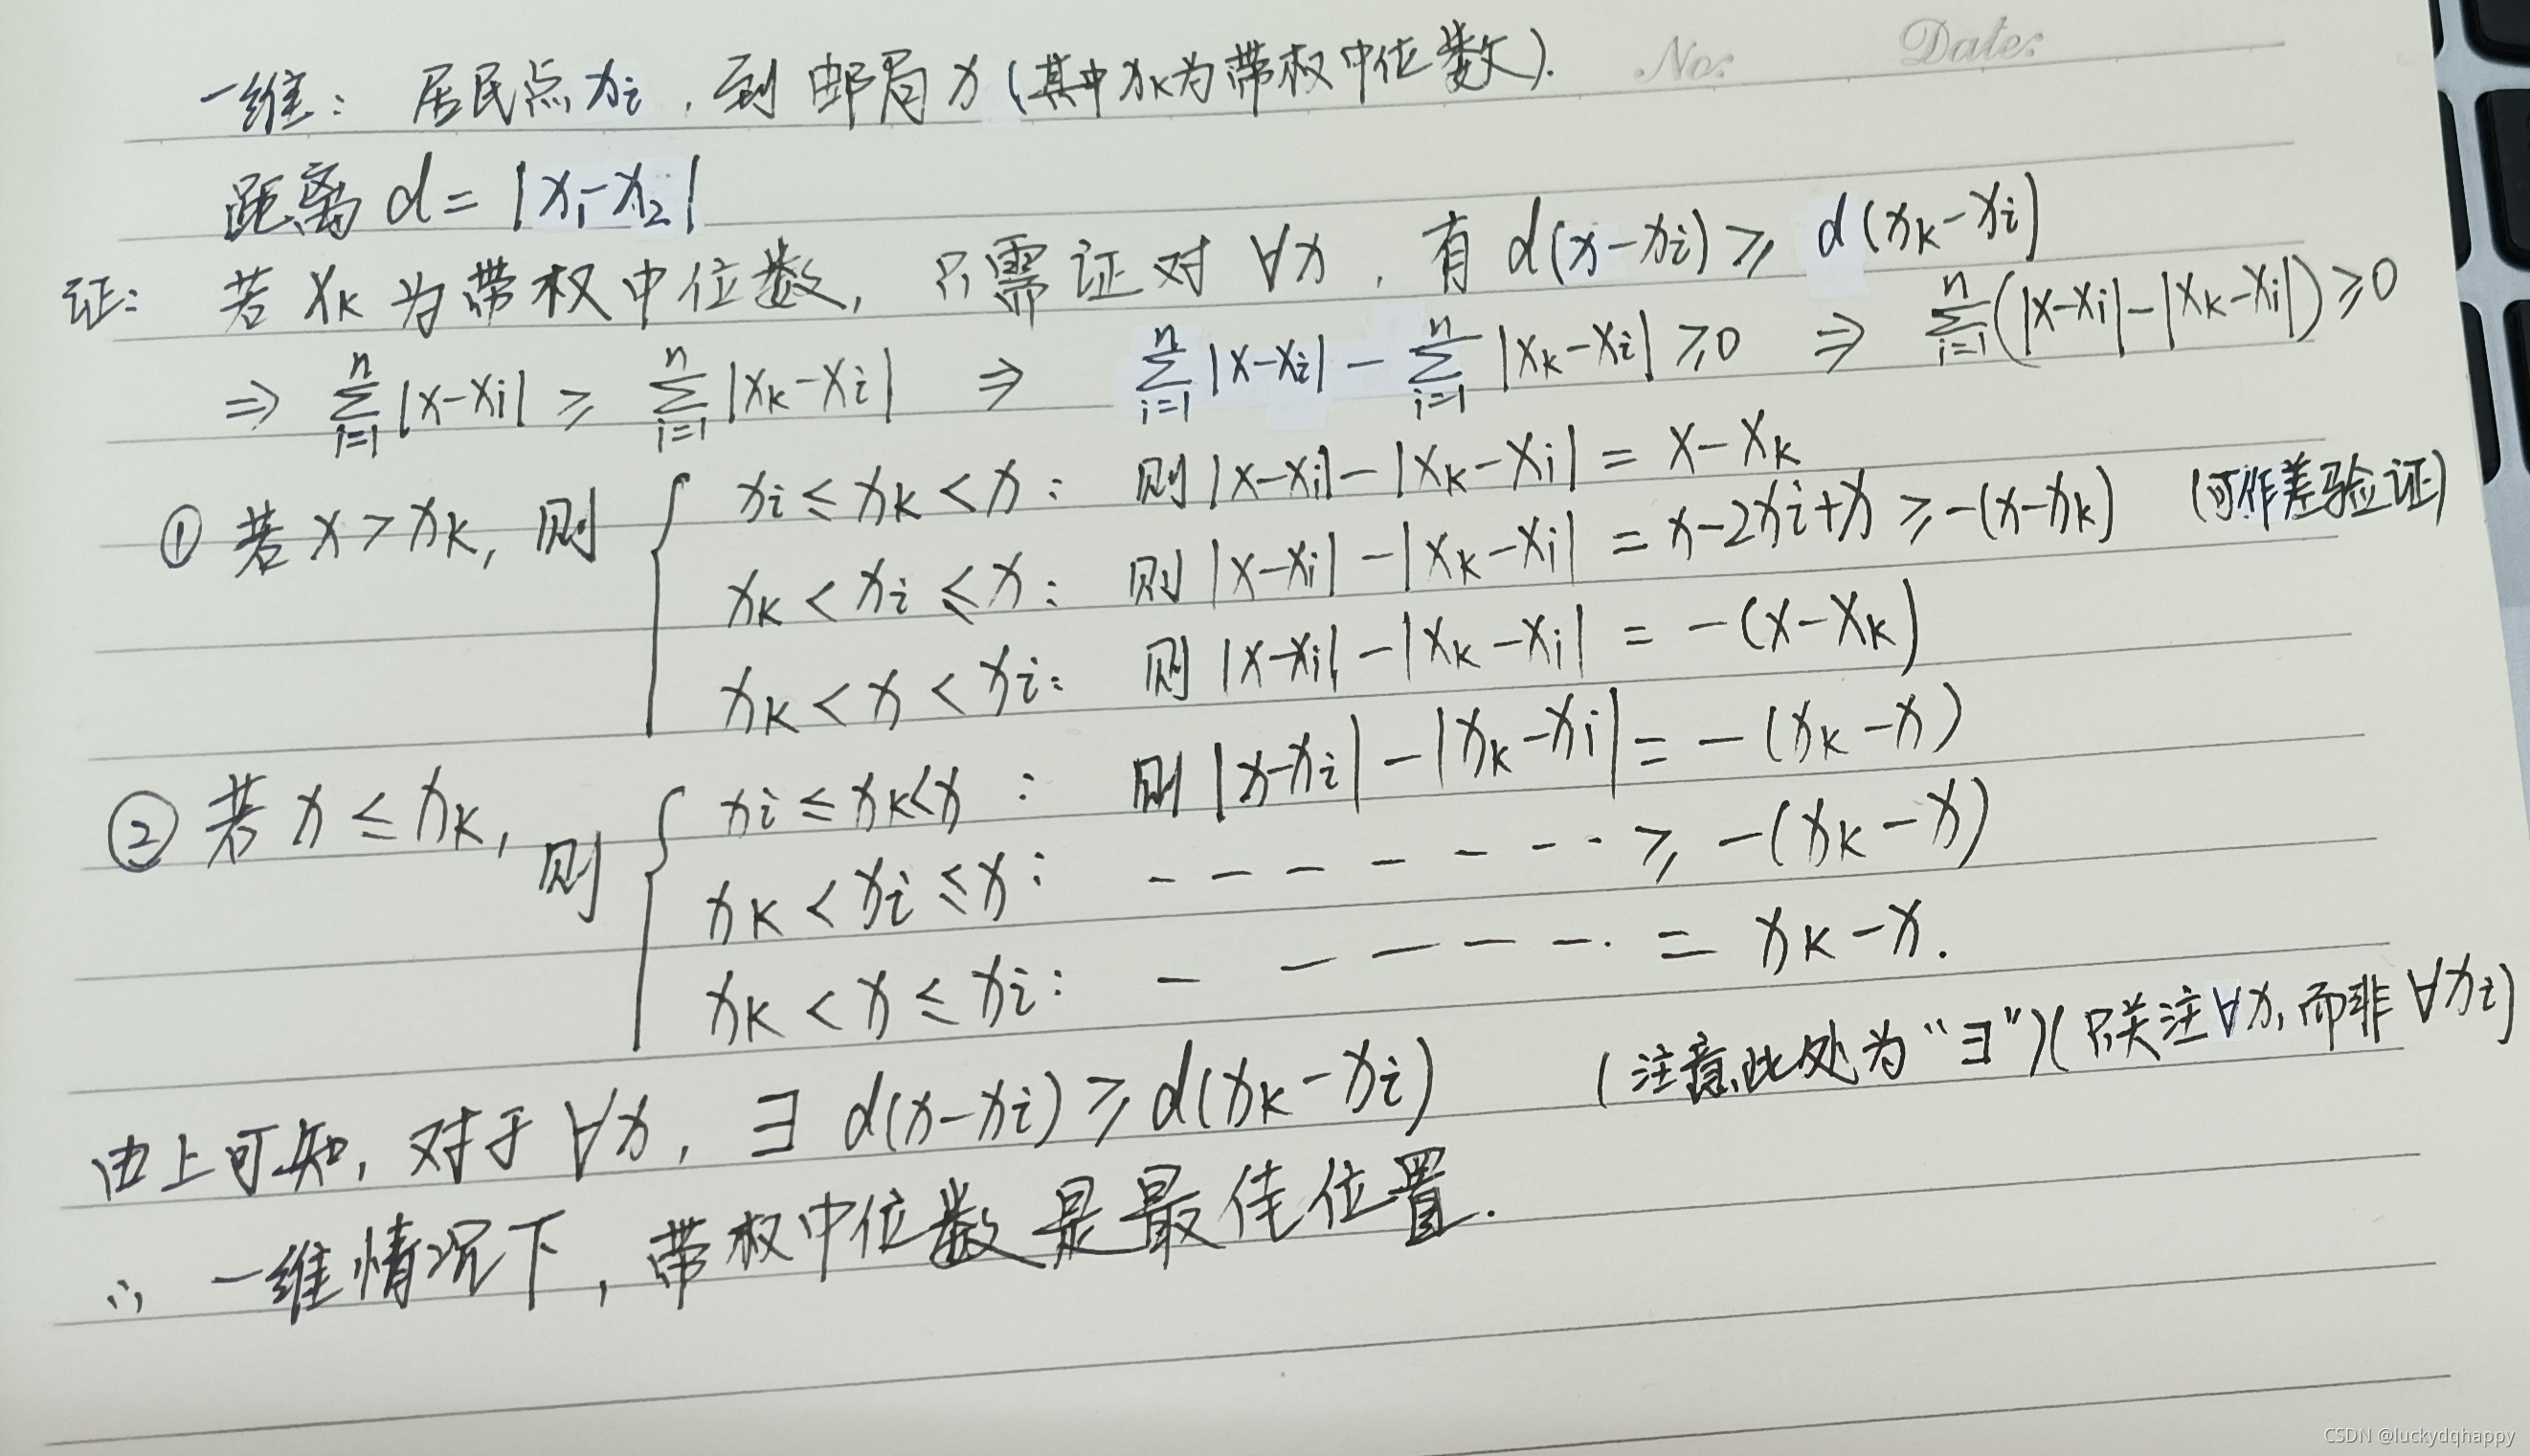 No: Date:
一维: 居民点xi, 到邮局x(其中xk为带权中位数).
距离d=|x1-x2|
证: 若xk为带权中位数, 只需证对∀x, 有d(x-xi)≥d(xk-xi)
⇒ ∑_{i=1}^{n}|x-xi| ≥ ∑_{i=1}^{n}|xk-xi| ⇒ ∑_{i=1}^{n}|x-xi| - ∑_{i=1}^{n}|xk-xi| ≥0 ⇒ ∑_{i=1}^{n}(|x-xi|-|xk-xi|)≥0
① 若x>xk, 则 { xi≤xk<x: 则|x-xi|-|xk-xi|=x-xk
xk<xi≤x: 则|x-xi|-|xk-xi|=x-2xi+x≥-(x-xk) (可作差验证)
xk<x<xi: 则|x-xi|-|xk-xi|=-(x-xk)
② 若x≤xk, 则 { xi≤xk<x: 则|x-xi|-|xk-xi|=-(xk-x)
xk<xi≤x: - - - - - - - ≥-(xk-x)
xk<x≤xi: - - - - - = xk-x.
由上可知, 对于∀x, ∃ d(x-xi)≥d(xk-xi) (注意此处为“∃”)(只关注∀x, 而非∀xi)
∴ 一维情况下, 带权中位数是最佳位置.
CSDN @luckydqhappy